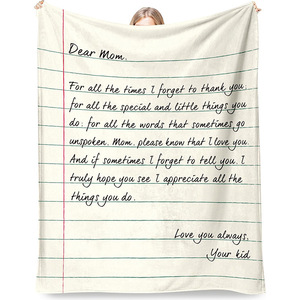 Dear Mom,
For all the times I forget to thank you,
for all the special and little things you
do. for all the words that sometimes go
unspoken. Mom. please know that I love you.
And if sometimes I forget to tell you. I
truly hope you see I appreciate all the
things you do.
Love you always,
Your kid